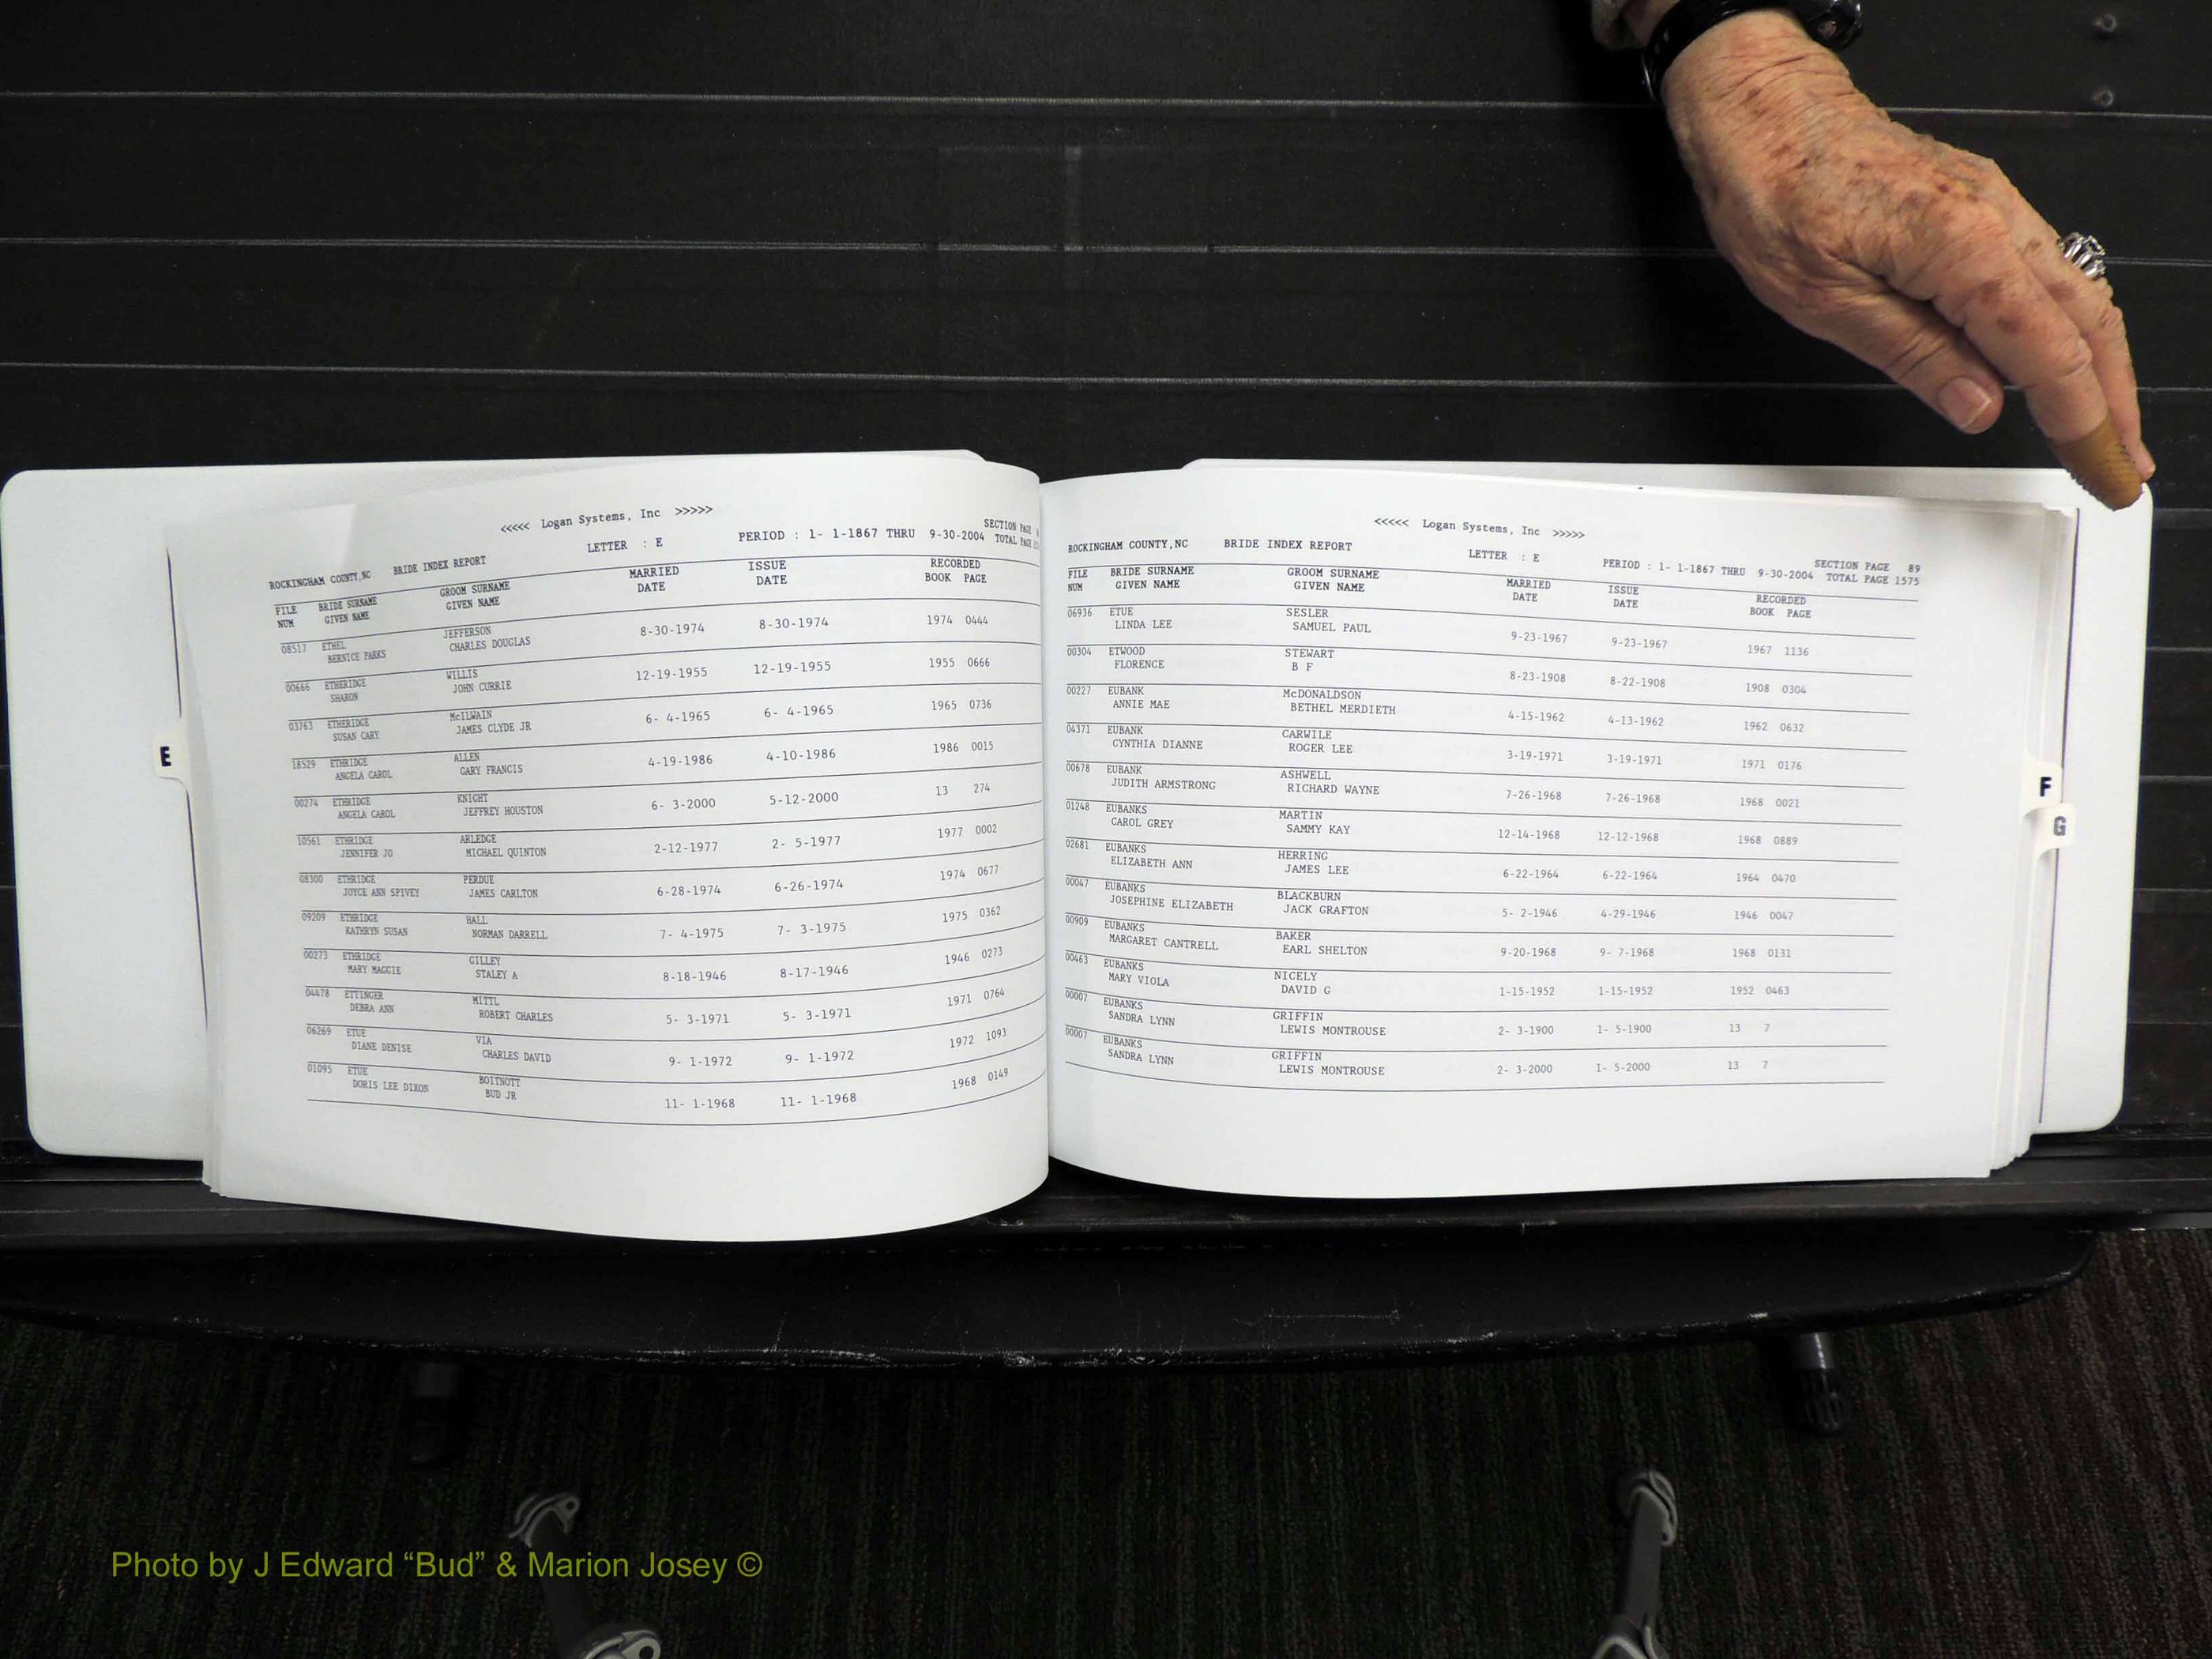 <<<<< Logan Systems, Inc >>>>>
ROCKINGHAM COUNTY,NC BRIDE INDEX REPORT LETTER : E PERIOD : 1- 1-1867 THRU 9-30-2004 SECTION PAGE
TOTAL PAGE
FILE BRIDE SURNAME GROOM SURNAME MARRIED ISSUE RECORDED
NUM GIVEN NAME GIVEN NAME DATE DATE BOOK PAGE
08517 ETHEL JEFFERSON 8-30-1974 8-30-1974 1974 0444
BERNICE PARKS CHARLES DOUGLAS
00666 ETHERIDGE WILLIS 12-19-1955 12-19-1955 1955 0666
SHARON JOHN CURRIE
03763 ETHERIDGE McILWAIN 6- 4-1965 6- 4-1965 1965 0736
SUSAN CARY JAMES CLYDE JR
18529 ETHRIDGE ALLEN 4-19-1986 4-10-1986 1986 0015
ANGELA CAROL GARY FRANCIS
00274 ETHRIDGE KNIGHT 6- 3-2000 5-12-2000 13 274
ANGELA CAROL JEFFREY HOUSTON
10561 ETHRIDGE ARLEDGE 2-12-1977 2- 5-1977 1977 0002
JENNIFER JO MICHAEL QUINTON
08300 ETHRIDGE PERDUE 6-28-1974 6-26-1974 1974 0677
JOYCE ANN SPIVEY JAMES CARLTON
09209 ETHRIDGE HALL 7- 4-1975 7- 3-1975 1975 0362
KATHRYN SUSAN NORMAN DARRELL
00273 ETHRIDGE GILLEY 8-18-1946 8-17-1946 1946 0273
MARY MAGGIE STALEY A
04478 ETTINGER MITTL 5- 3-1971 5- 3-1971 1971 0764
DEBRA ANN ROBERT CHARLES
06269 ETUE VIA 9- 1-1972 9- 1-1972 1972 1093
DIANE DENISE CHARLES DAVID
01095 ETUE BOITNOTT 11- 1-1968 11- 1-1968 1968 0149
DORIS LEE DIXON BUD JR
E
<<<<< Logan Systems, Inc >>>>>
ROCKINGHAM COUNTY,NC BRIDE INDEX REPORT LETTER : E PERIOD : 1- 1-1867 THRU 9-30-2004 SECTION PAGE 89
TOTAL PAGE 1575
FILE BRIDE SURNAME GROOM SURNAME MARRIED ISSUE RECORDED
NUM GIVEN NAME GIVEN NAME DATE DATE BOOK PAGE
06936 ETUE SESLER 9-23-1967 9-23-1967 1967 1136
LINDA LEE SAMUEL PAUL
00304 ETWOOD STEWART 8-23-1908 8-22-1908 1908 0304
FLORENCE B F
00227 EUBANK McDONALDSON 4-15-1962 4-13-1962 1962 0632
ANNIE MAE BETHEL MERDIETH
04371 EUBANK CARWILE 3-19-1971 3-19-1971 1971 0176
CYNTHIA DIANNE ROGER LEE
00678 EUBANK ASHWELL 7-26-1968 7-26-1968 1968 0021
JUDITH ARMSTRONG RICHARD WAYNE
01248 EUBANKS MARTIN 12-14-1968 12-12-1968 1968 0889
CAROL GREY SAMMY KAY
02681 EUBANKS HERRING 6-22-1964 6-22-1964 1964 0470
ELIZABETH ANN JAMES LEE
00047 EUBANKS BLACKBURN 5- 2-1946 4-29-1946 1946 0047
JOSEPHINE ELIZABETH JACK GRAFTON
00909 EUBANKS BAKER 9-20-1968 9- 7-1968 1968 0131
MARGARET CANTRELL EARL SHELTON
00463 EUBANKS NICELY 1-15-1952 1-15-1952 1952 0463
MARY VIOLA DAVID G
00007 EUBANKS GRIFFIN 2- 3-1900 1- 5-1900 13 7
SANDRA LYNN LEWIS MONTROUSE
00007 EUBANKS GRIFFIN 2- 3-2000 1- 5-2000 13 7
SANDRA LYNN LEWIS MONTROUSE
F
G
Photo by J Edward “Bud” & Marion Josey ©